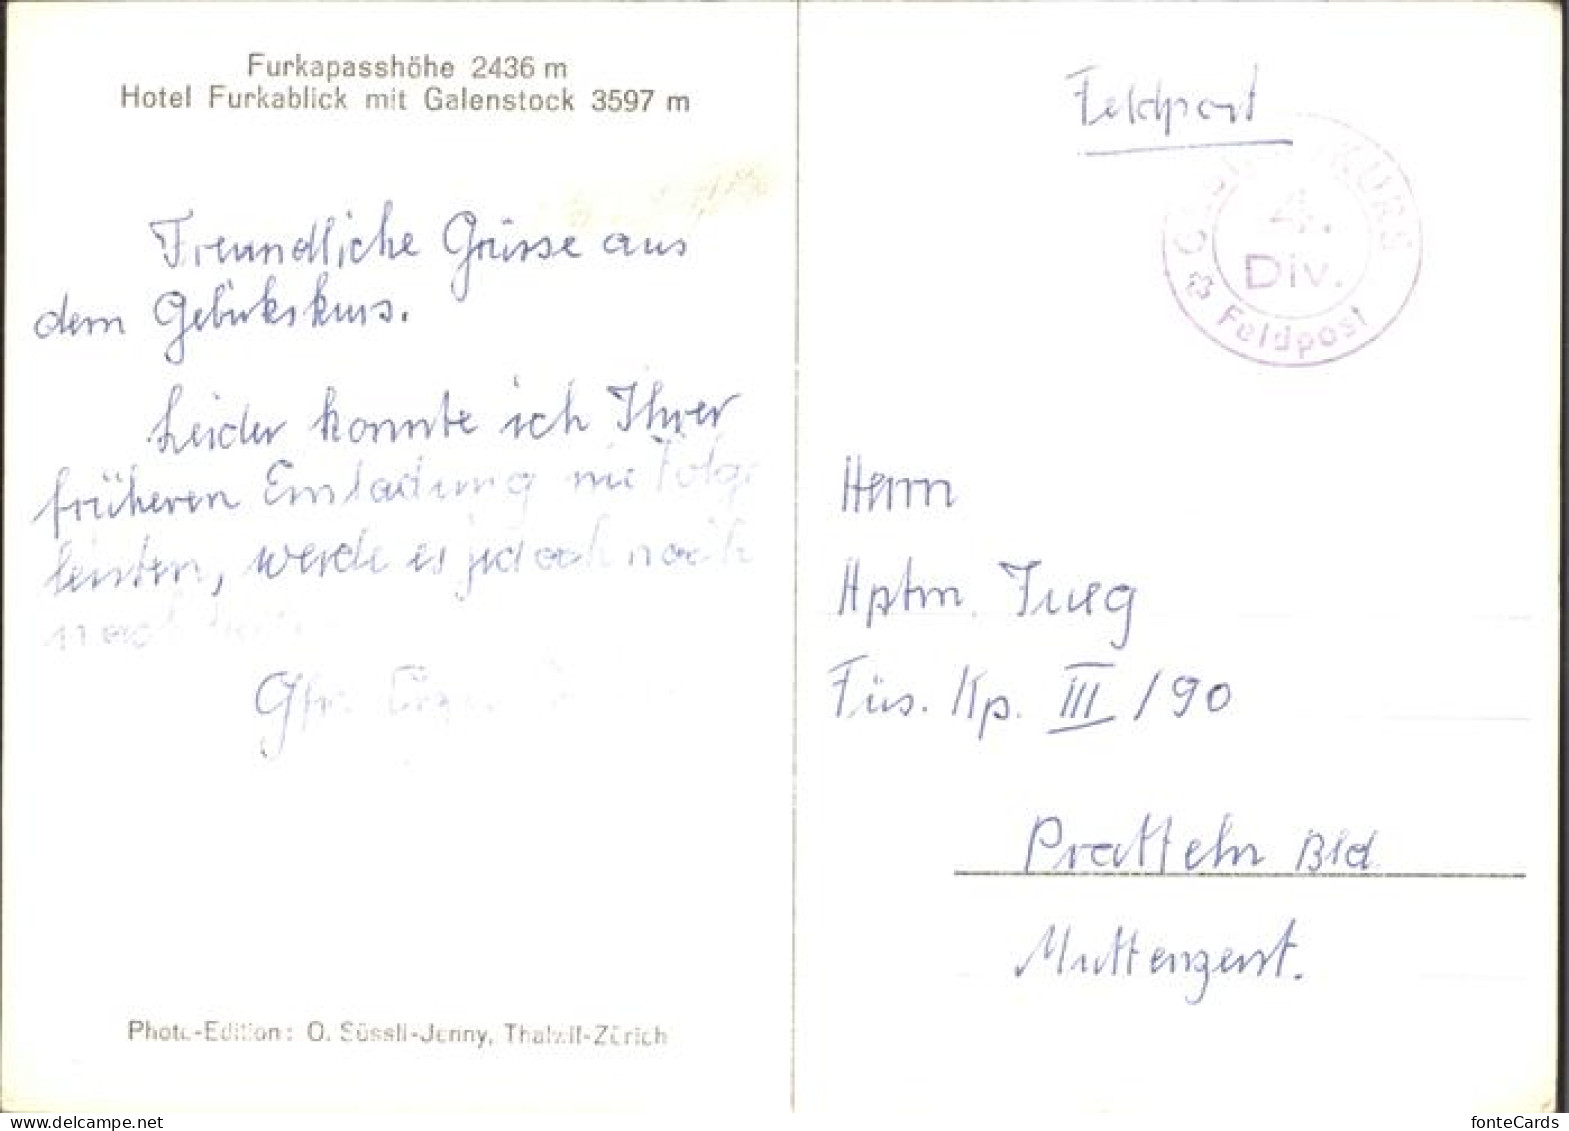 Furkapasshöhe 2436 m
Hotel Furkablick mit Galenstock 3597 m
Freundliche Grüsse aus
dem Gebirkskurs.
Leider konnte ich Ihrer
früheren Einladung nie Folge
leisten, werde es jedoch noch
Gfr.
Photo-Edition: O. Süssli-Jenny, Thalwil-Zürich
Feldpost
KURS
4.
Div.
Feldpost
Herrn
Hptm.
Füs. Kp. III / 90
Pratteln Bld
Muttenzerst.
fonteCards